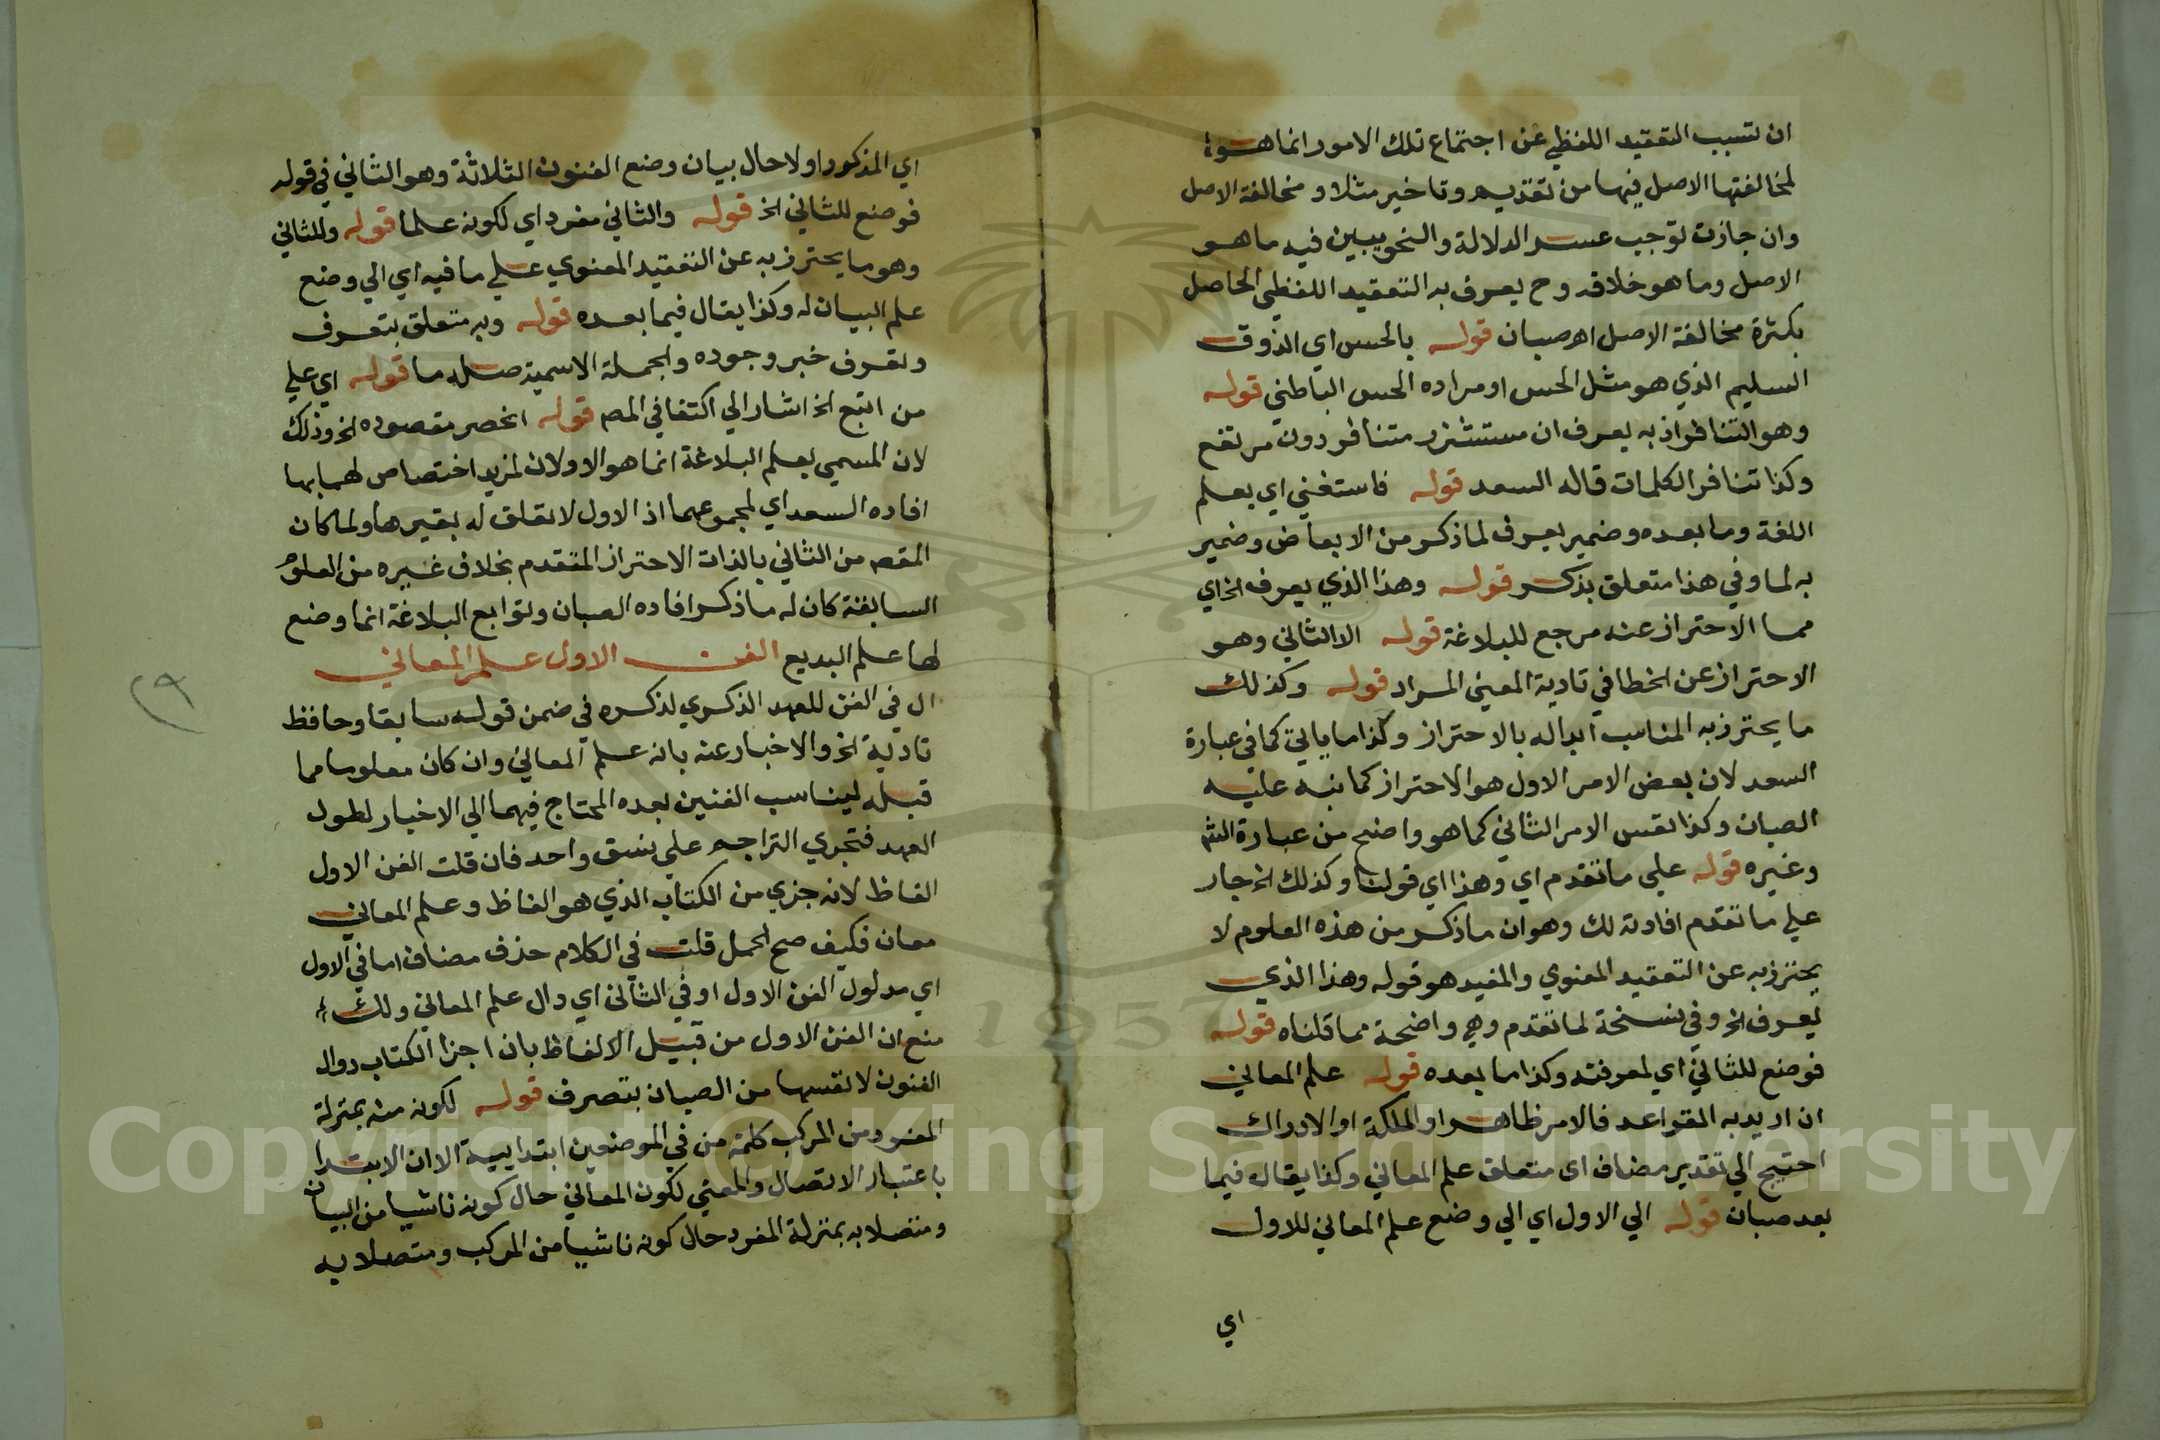 ان تسبب التعقيد اللفظي عن اجتماع تلك الامور انما هو
لمخالفتها الاصل فيها من تقديم وتاخير مثلا و مخالفة الاصل
وان جازت توجب عسر الدلالة والنحو يبين فيه ما هو
الاصل وما هو خلافه وح يعرف به التعقيد اللفظي الحاصل
بكثرة مخالفة الاصل اهر صبان قوله بالحس اي الذوق
السليم الذي هو مثل الحس او مراده الحس الباطني قوله
وهو التنافر اذ به يعرف ان مستشزر متنافر دون مرتفع
وكذا تنافر الكلمات قاله السعد قوله فاستغني اي بعلم
اللغة وما بعده وضمير يعرف لما ذكر من الابعاض وضمير
به لما وفي هذا متعلق بذكر قوله وهذا الذي يعرف الخ اي
مما الاحتراز عنه مرجع للبلاغة قوله الا الثاني وهو
الاحتراز عن الخطا في تادية المعني المراد قوله وكذلك
ما يحترز به المناسب ابداله بالاحتراز وكذا ما ياتي كما في عبارة
السعد لان بعض الامر الاول هو الاحتراز كما نبه عليه
الصبان وكذا نفس الامر الثاني كما هو واضح من عبارة الشم
وغيره قوله علي ما تقدم اي وهذا اي قولنا وكذلك الخ جار
علي ما تقدم افادته لك وهو ان ما ذكر من هذه العلوم لا
يحترز به عن التعقيد المعنوي والمفيد هو قوله وهذا الذي
يعرف الخ وفي نسخة لما تقدم وهي واضحة مما قلناه قوله
فوضع للثاني اي لمعرفته وكذا ما بعده قوله علم المعاني
ان اريد به القواعد فالامر ظاهر او الملكة او الادراك
احتيج الي تقدير مضاف اي متعلق علم المعاني وكذا يقال فيما
بعد صبان قوله الي الاول اي الي وضع علم المعاني للاول
اي
اي المذكور اولا حال بيان وضع الفنون الثلاثة وهو الثاني في قوله
فوضع للثاني الخ قوله والثاني مفرد اي لكونه علما قوله وللثاني
وهو ما يحترز به عن التعقيد المعنوي علي ما فيه اي الي وضع
علم البيان له وكذا يقال فيما بعده قوله وبه متعلق بتعرف
وتعرف خبر وجوده والجملة الاسمية صلة ما قوله اي علي
من اتبع الخ اشار الي اكتفا في المص قوله انحصر مقصوده الخ وذلك
لان المسمي بعلم البلاغة انما هو الاولان لمزيد اختصاص لهما بها
افاده السعد اي لمجموعهما اذ الاول لا تعلق له بغيرها ولما كان
المقصـ من الثاني بالذات الاحتراز المتقدم بخلاف غيره من العلوم
السابقة كان له ما ذكر افاده الصبان وتوابع البلاغة انما وضع
لها علم البديع الفن الاول علم المعاني
ال في الفن للعهد الذكري لذكره في ضمن قوله سابقا وحافظ
تادية الخ والاخبار عنه بانه علم المعاني وان كان معلوما مما
قبله ليناسب الفنين بعده المحتاج فيهما الي الاخبار لطول
العهد فتجري التراجم علي نسق واحد فان قلت الفن الاول
الفاظ لانه جزي من الكتاب الذي هو الفاظ وعلم المعاني
معان فكيف صح الحمل قلت في الكلام حذف مضاف اما في الاول
اي مدلول الفن الاول او في الثاني اي دال علم المعاني ولك
منع ان الفن الاول من قبيل الالفاظ بان اجزا الكتاب دوال
الفنون لا نفسها من الصبان بتصرف قوله لكونه منه بمنزلة
المفرد من المركب كلمة من في الموضعين ابتدايية الا ان الابتدا
باعتبار الاتصال والمعني لكون المعاني حال كونه ناشيا من البيان
ومتصلا به بمنزلة المفرد حال كونه ناشيا من المركب ومتصلا به
٢٩
1957
Copyright © King Saud University